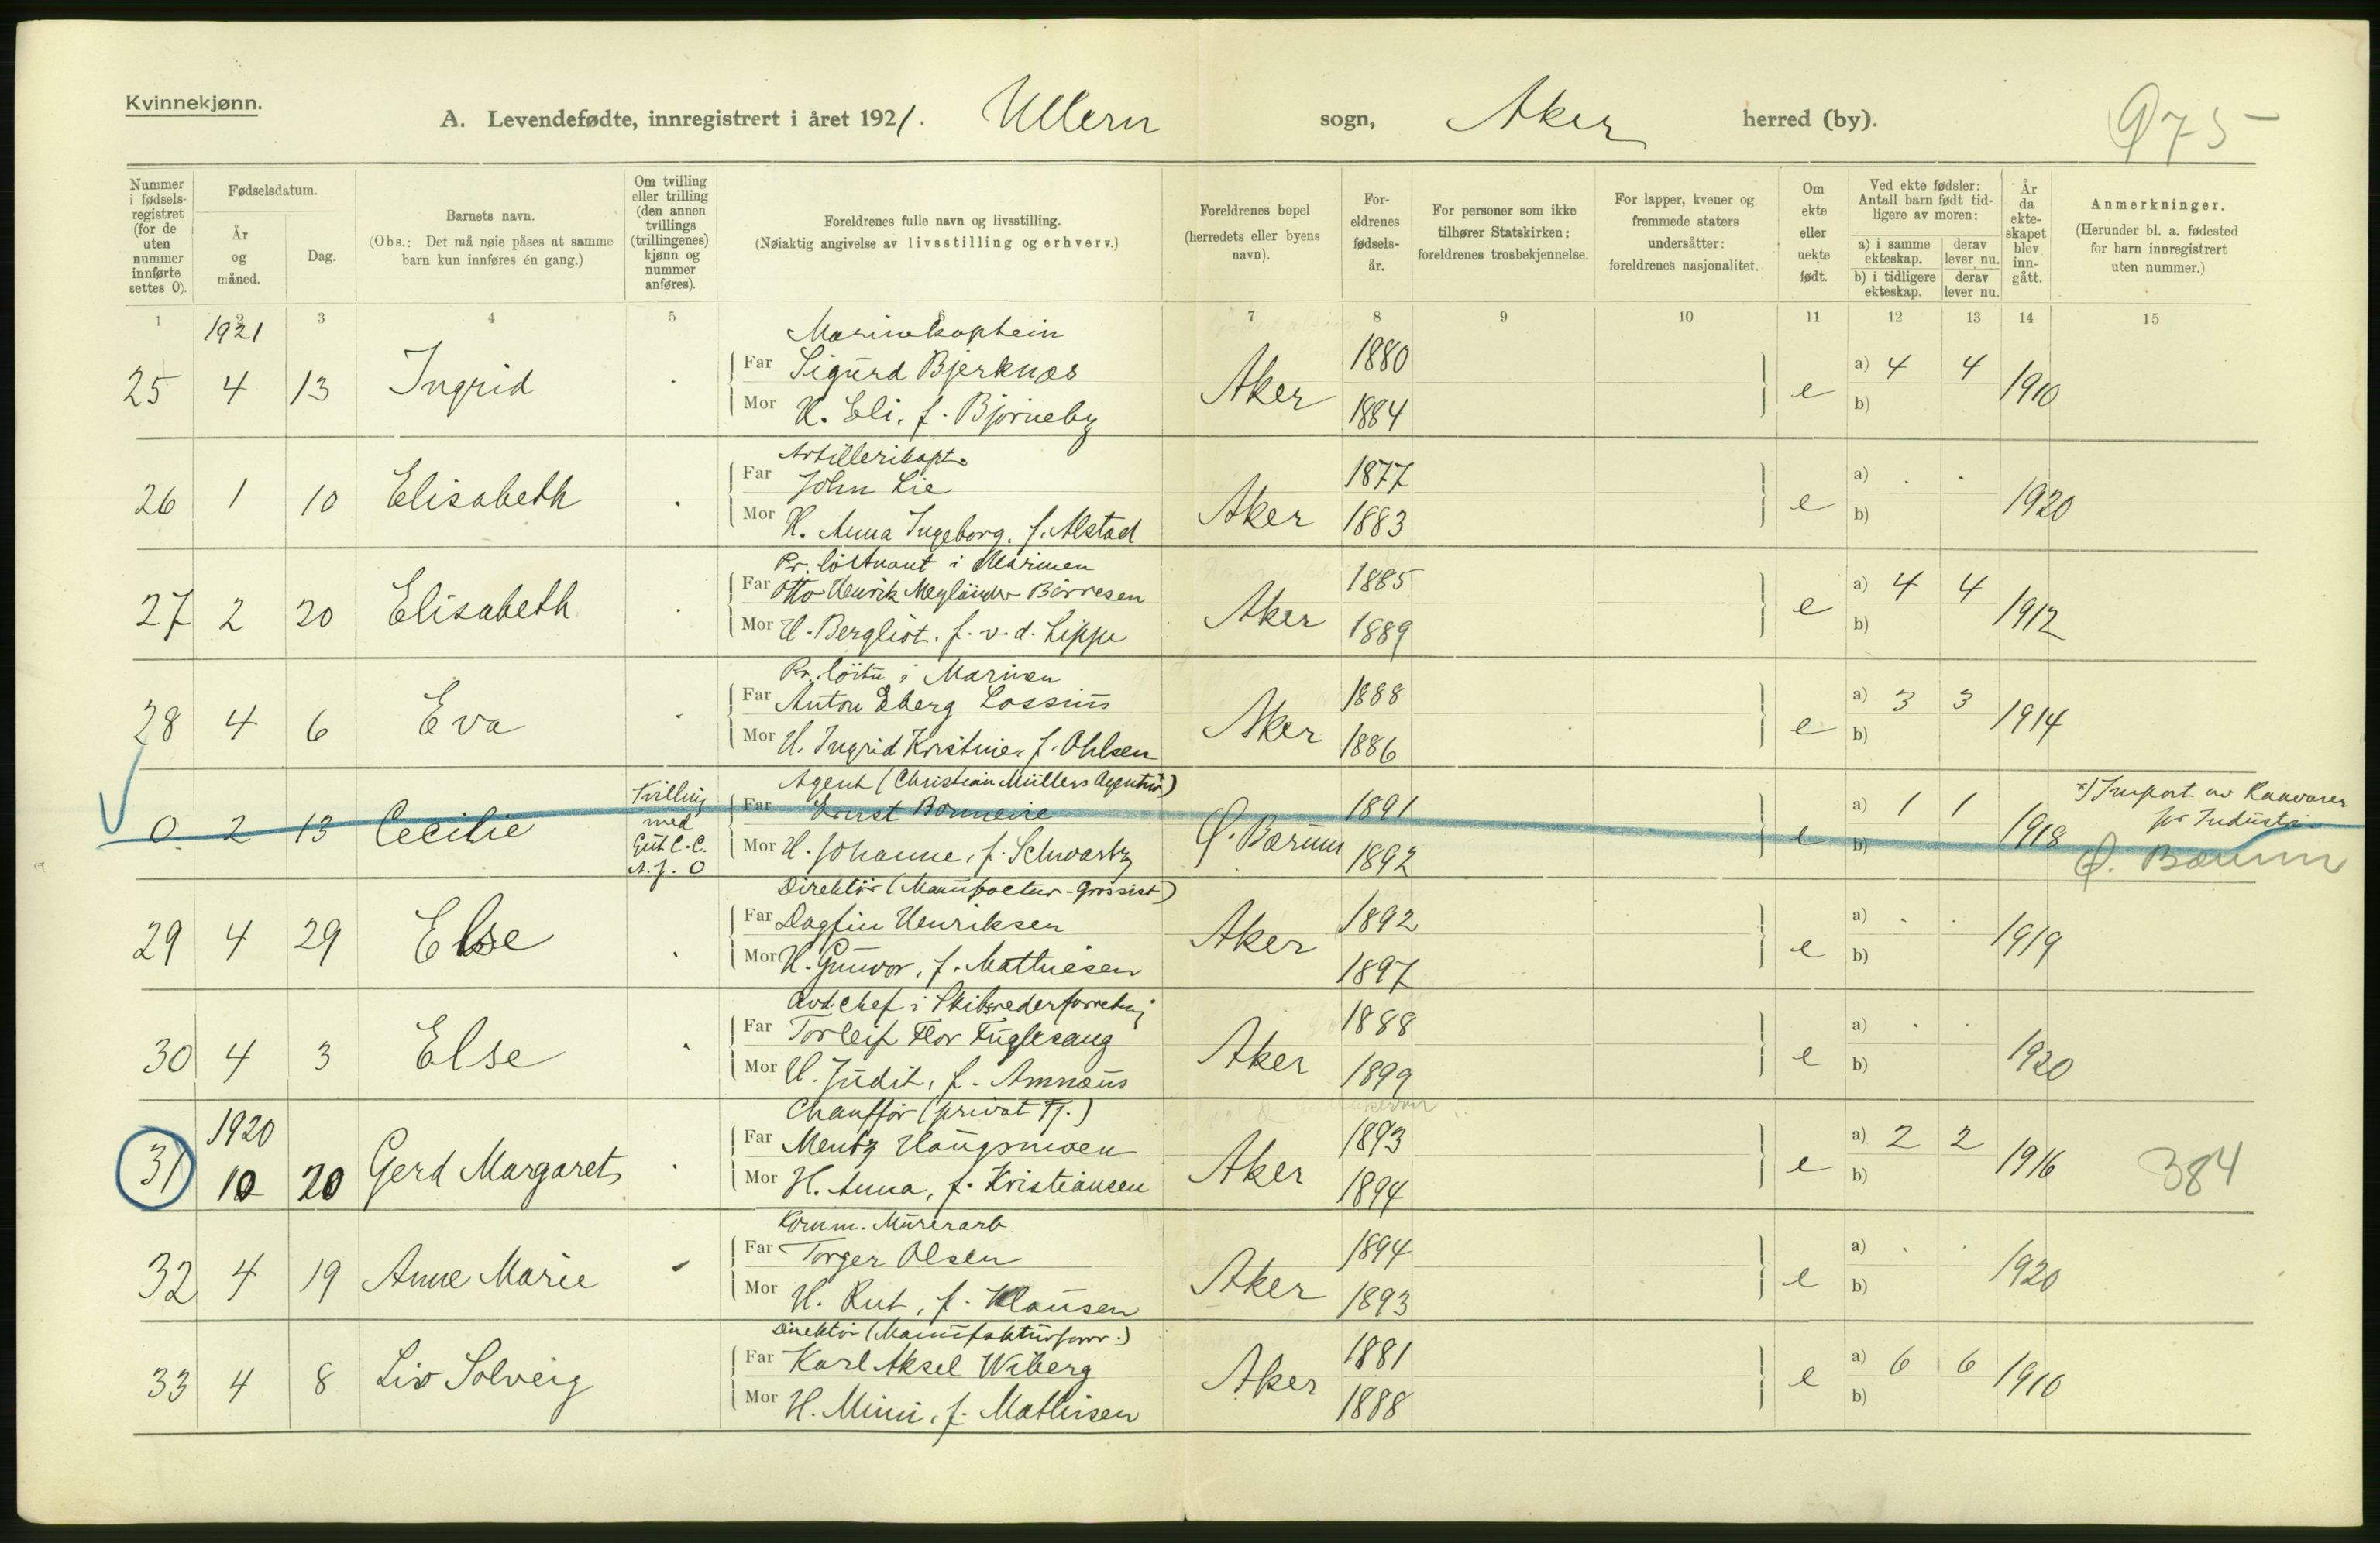 Kvinnekjønn.
A. Levendefødte, innregistrert i året 1921. Ullern sogn, Aker herred (by).
975
Nummer i fødselsregistret (for de uten nummer innførte settes 0).
Fødselsdatum.
År og måned.
Dag.
Barnets navn.
(Obs.: Det må nøie påses at samme barn kun innføres én gang.)
Om tvilling eller trilling (den annen tvillings (trillingenes) kjønn og nummer anføres).
Foreldrenes fulle navn og livsstilling.
(Nøiaktig angivelse av livsstilling og erhverv.)
Foreldrenes bopel (herredets eller byens navn).
Foreldrenes fødselsår.
For personer som ikke tilhører Statskirken: foreldrenes trosbekjennelse.
For lapper, kvener og fremmede staters undersåtter: foreldrenes nasjonalitet.
Om ekte eller uekte født.
Ved ekte fødsler: Antall barn født tidligere av moren:
a) i samme ekteskap. derav lever nu.
b) i tidligere ekteskap. derav lever nu.
År da ekteskapet blev inngått.
Anmerkninger.
(Herunder bl. a. fødested for barn innregistrert uten nummer.)
1 2 3 4 5 6 7 8 9 10 11 12 13 14 15
1921
Marinekaptein
Far Sigurd Bjerknæs 1880 a) 4 4
25 4 13 Ingrid Aker e 1910
Mor H. Eli, f. Bjørneby 1884 b)
Artillerikapt.
Far John Lie 1877 a) . .
26 1 10 Elisabeth . Aker e 1920
Mor H. Anna Ingeborg, f. Alstad 1883 b)
Pr. löitnant i Marinen
Far Otto Henrik Børresen 1885 a) 4 4
27 2 20 Elisabeth . Aker e 1912
Mor H. Bergliot, f. v. d. Lippe 1889 b)
Pr. löitn i Marinen
Far Anton Lossius 1888 a) 3 3
28 4 6 Eva . Aker e 1914
Mor H. Ingrid Kristine, f. Ohlsen 1886 b)
Agent (Christian Müllers Agentur x)
Far Ernst 1891 a) 1 1
0 2 13 Cecilie Tvilling med Gut C. C. A. J. 0 Ø. Bærum e 1918 x) Import av Raavarer for Industri
Mor H. Johanne, f. Schwartz 1892 b) Ø. Bærum
Direktör (Manufactur-Grossist)
Far Dagfin Henriksen 1892 a) . .
29 4 29 Else . Aker e 1919
Mor H. Gunvor, f. Mathiesen 1897 b)
Avd. chef i Skibsrederforretning
Far Torleif Flor Fuglesang 1888 a) . .
30 4 3 Else . Aker e 1920
Mor H. Judit, f. Amnæus 1899 b)
Chauffør (privat Tj.)
1920
Far Mentz Haugsmoen 1893 a) 2 2
31 10 20 Gerd Margaret . Aker e 1916 384
Mor H. Anna, f. Kristiansen 1894 b)
Komm. Murerarb.
Far Torger Olsen 1894 a) . .
32 4 19 Anne Marie Aker e 1920
Mor H. Rut, f. Klausen 1893 b)
Direktör (Manufakturforr.)
Far Karl Aksel Wiberg 1881 a) 6 6
33 4 8 Liv Solveig Aker e 1910
Mor H. Mimi, f. Mathisen 1888 b)